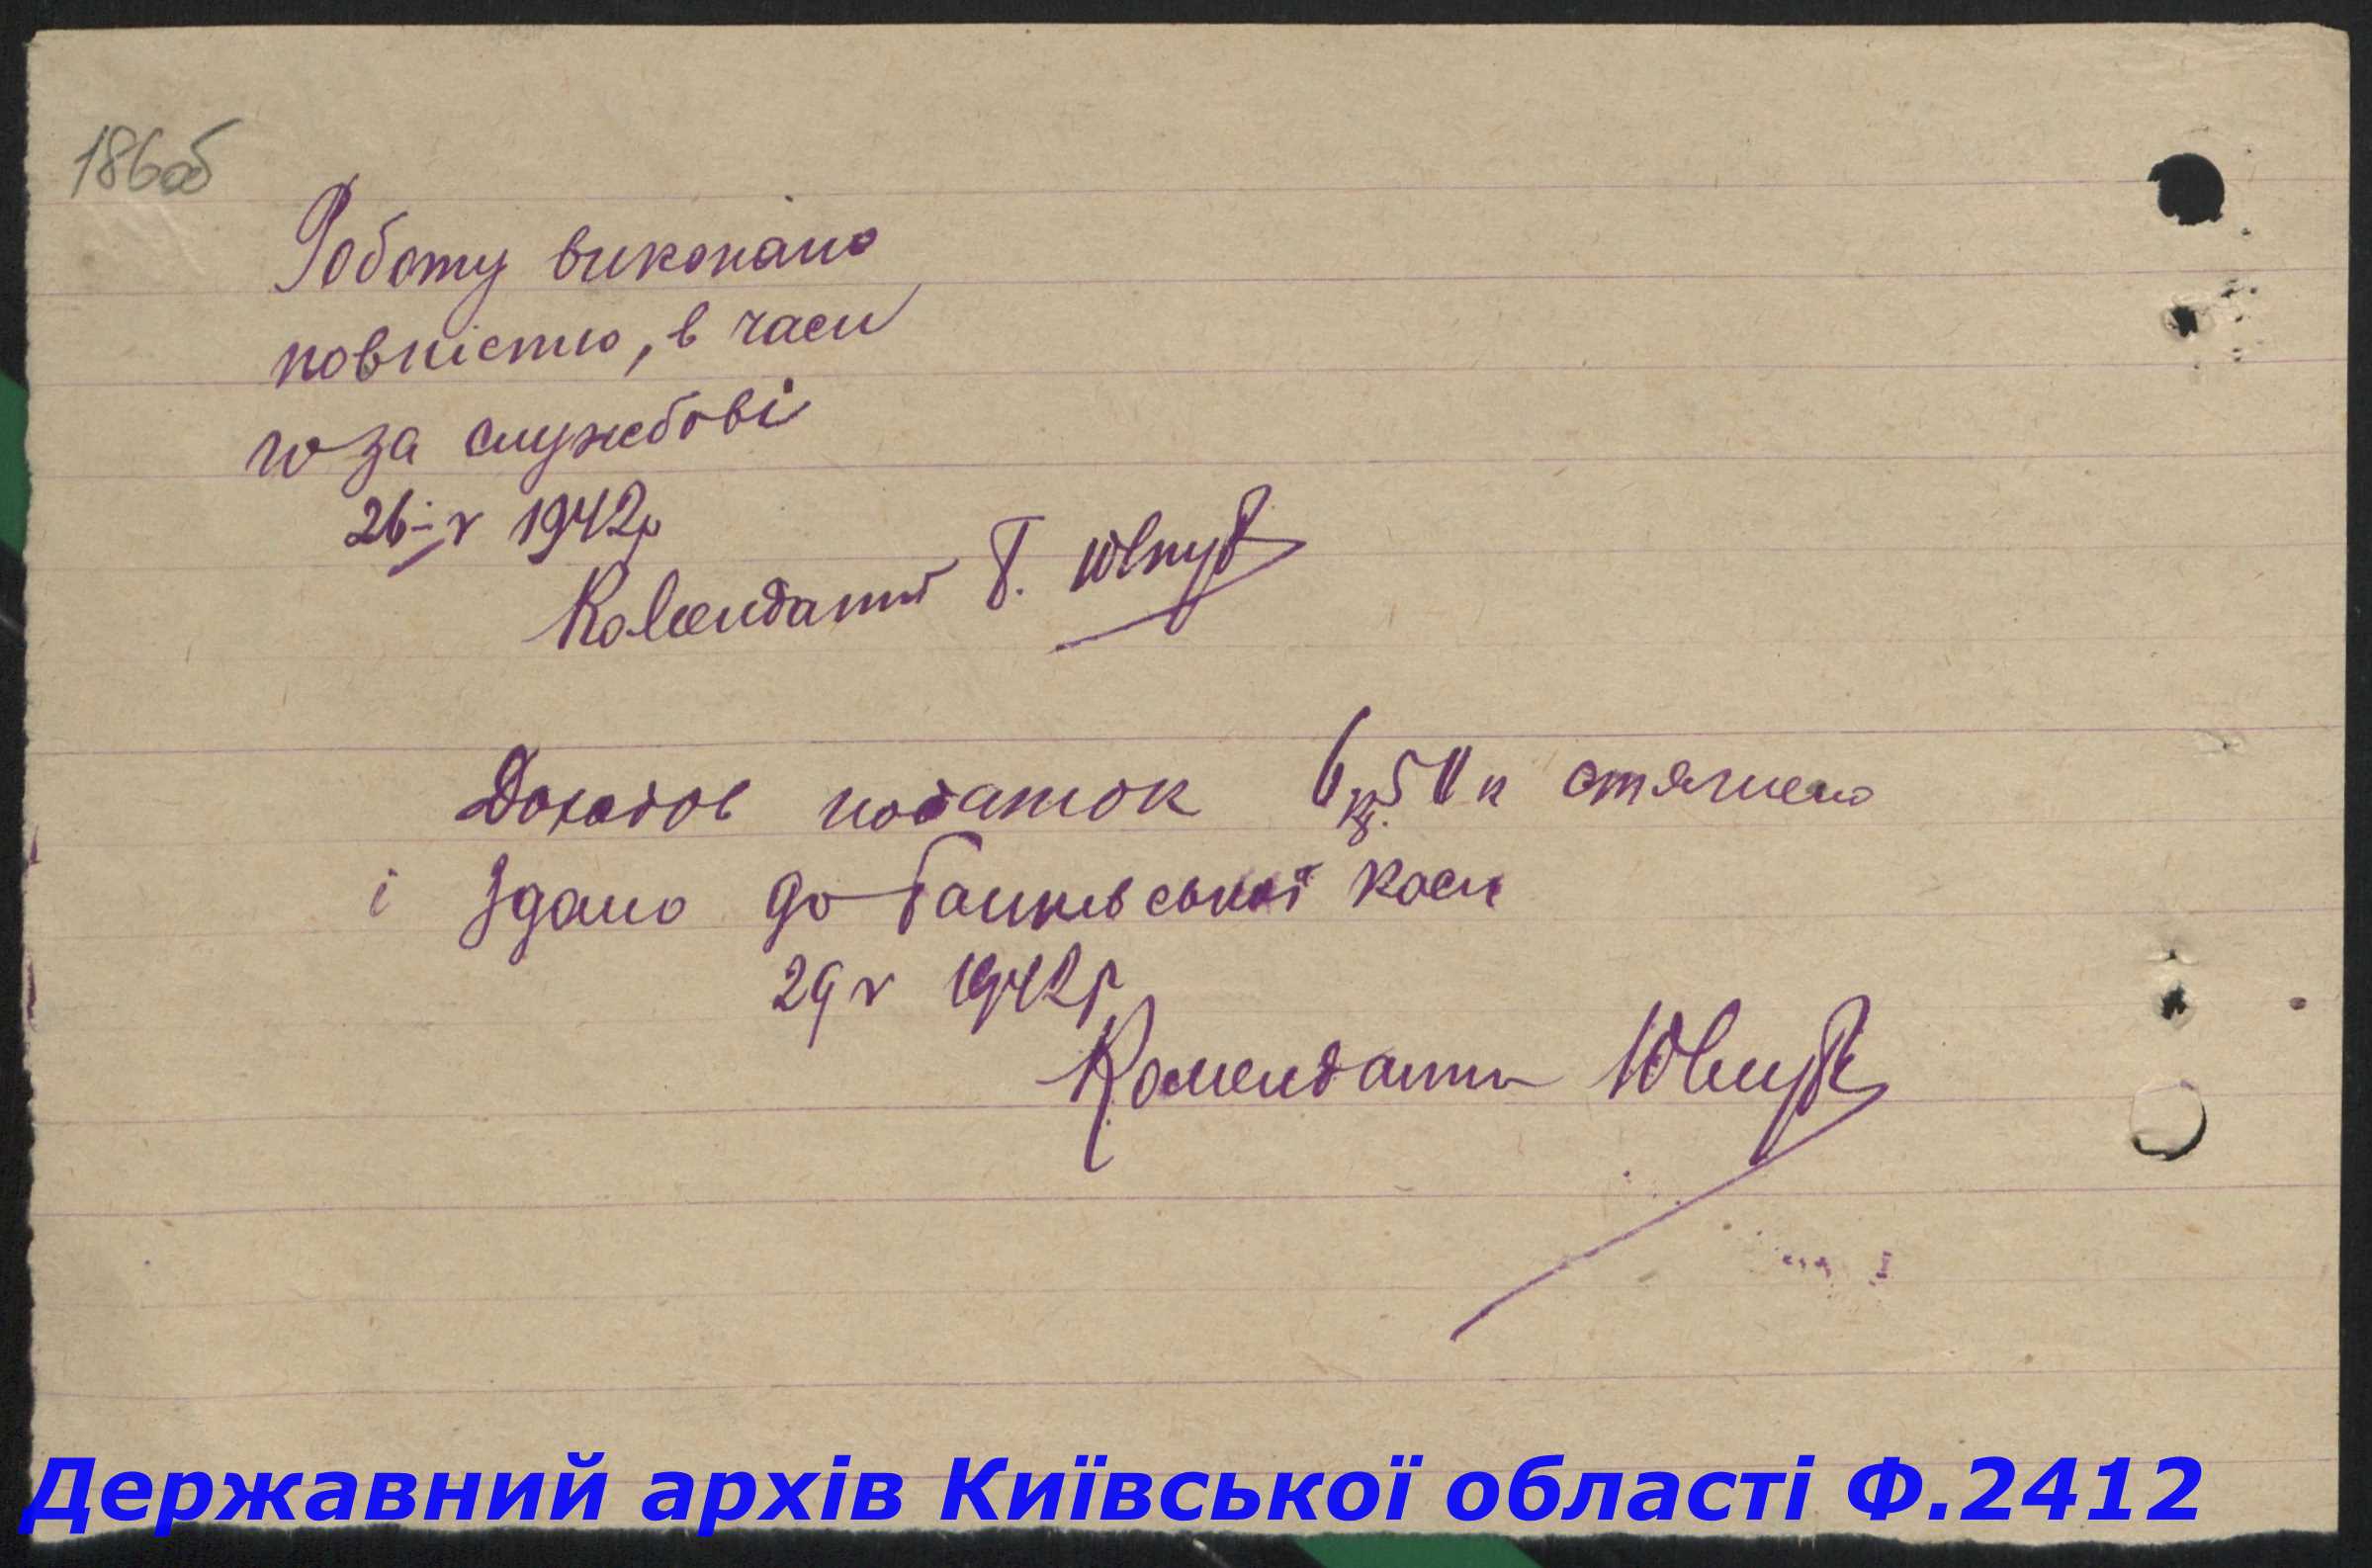 186об
Роботу виконано
повністю, в часи
поза службові
26-V 1942р
Комендант
Доходов податок 6 крб. 50 к стягнено
і здано до банківської каси
29 V 1942р
Комендант
Державний архів Київської області Ф.2412